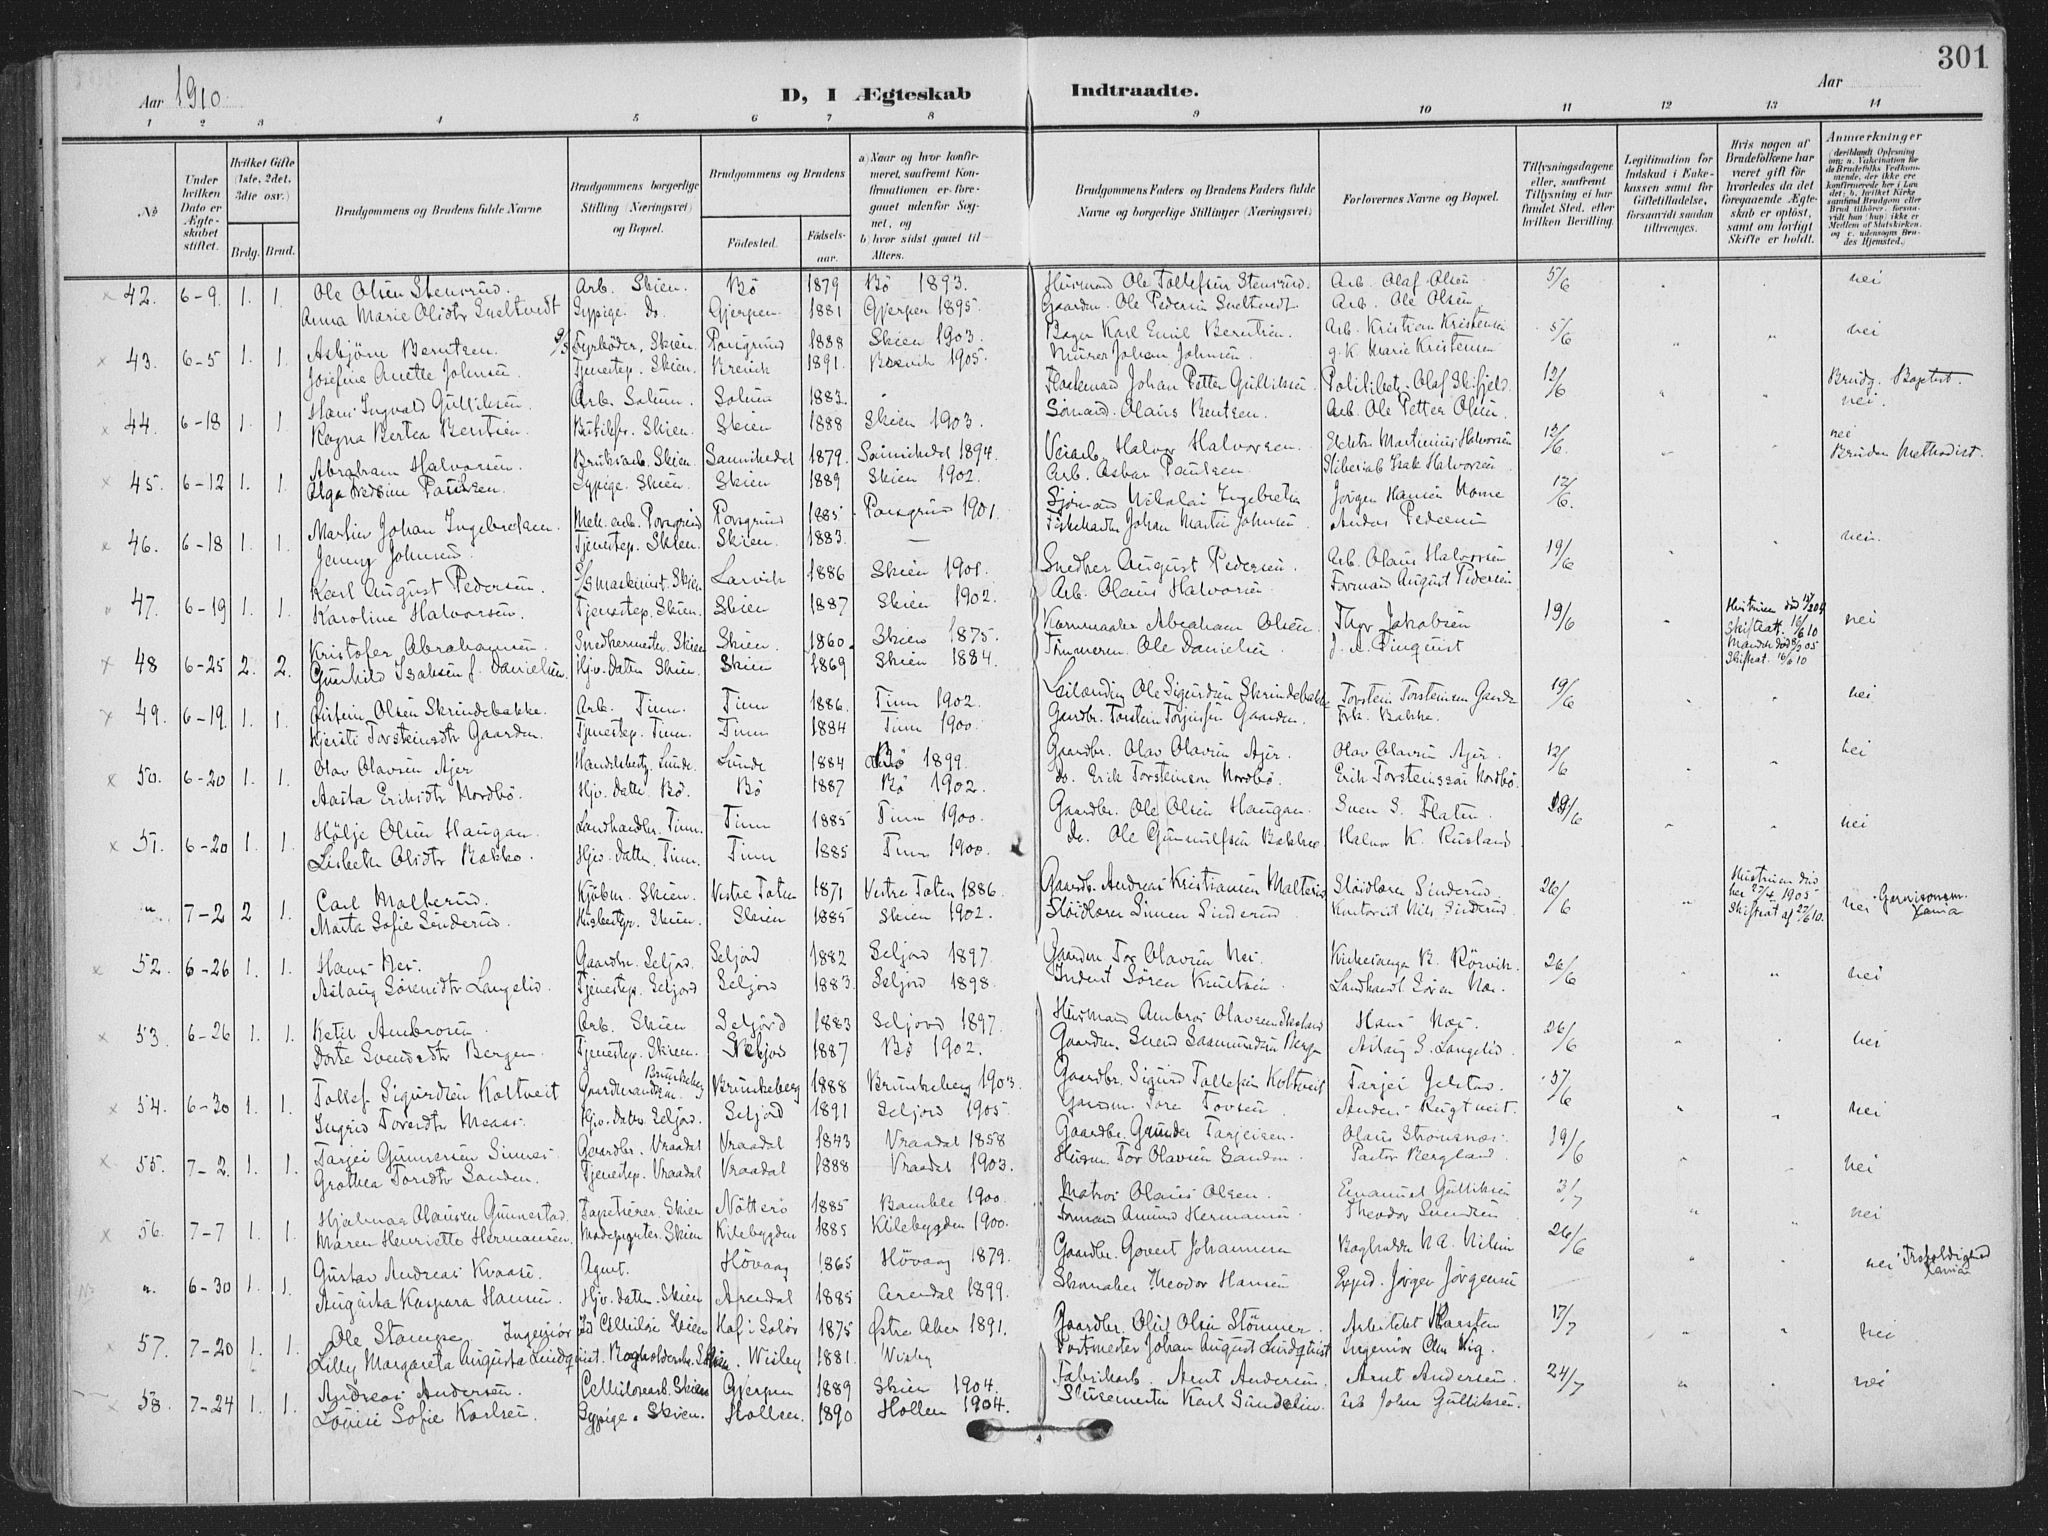 301
Aar 1910. D, I Ægteskab Indtraadte. Aar
1 2 3 4 5 6 7 8 9 10 11 12 13 14
No
Under hvilken Dato er Ægteskabet stiftet.
Hvilket Gifte (1ste, 2det, 3die osv.)
Brdg. Brud.
Brudgommens og Brudens fulde Navne
Brudgommens borgerlige Stilling (Næringsvei) og Bopæl.
Brudgommens og Brudens
Födested. Födselsaar.
a) Naar og hvor konfirmeret, saafremt Konfirmationen er foregaaet udenfor Sognet, og
b) hvor sidst gaaet til Alters.
Brudgommens Faders og Brudens Faders fulde Navne og borgerlige Stillinger (Næringsvei)
Forlovernes Navne og Bopæl.
Tillysningsdagene eller, saafremt Tillysning ei har fundet Sted, efter hvilken Bevilling.
Legitimation for Indskud i Enkekassen samt for Giftetilladelse, forsaavidt saadan tiltrænges.
Hvis nogen af Brudefolkene har været gift før hvorledes da det foregaaende Ægteskab er opløst, samt om lovligt Skifte er holdt.
Anmærkninger
42. 6-9. 1. 1. Ole Olsen Stensrud. Arb. Skien. Bö 1879 Bö 1893. Husmand Ole Tollefsen Stensrud. Arb. Olaf Olsen 5/6 nei
Anna Marie Olsdtr Sneltvedt Sypige. Do. Gjerpen. 1881 Gjerpen 1895. Gaardm. Ole Pedersen Sneltvedt. Arb. Ole Olsen
43. 6-5 1. 1. Asbjörn Berntsen. Fyrböder. Skien. Porsgrund 1888 Skien 1903. Bager Karl Emil Berntsen. Arb. Kristian Kristensen 5/6 nei
Josefine Anette Johnsen. Tjenestep. Skien. Brevik 1891. Brevik 1905. Murer Johan Johnsen. g.K. Marie Kristensen
44. 6-18 1. 1. Hans Ingvald Gulliksen. Arb. Solum. Solum 1883. Johan Petter Gulliksen. Politibetj. Olaf 12/6 Brudg. Baptist. nei.
Ragna Bertea Berntsen. Skien. Skien 1888 Skien 1903. Sömand. Olaus Berntsen. Arb. Ole Petter Olsen.
45. 6-12 1. 1. Abraham Halvorsen. Bruksarb. Skien. Sannikedal 1879. Sannikedal 1894. Veiarb. Halvor Halvorsen. Martinius Halvorsen 12/6 nei
Olga Paulsen. Sypige. Skien. Skien 1889 Skien 1902. Arb. Paulsen. Isak Halvorsen. Bruden Methodist.
46. 6-18 1. 1. Martin Johan Ingebretsen. Mek. arb. Porsgrund Porsgrund 1885 Porsgrund 1901. Sjömand Nikolai Ingebretsen Jörgen Hansen 12/6. nei.
Jenny Johnsen. Tjenestep. Skien. Skien. 1883. — Johan Martin Johnsen. Pedersen
47. 6-19 1. 1. Karl August Pedersen. Maskinist. Skien Larvik 1886 Skien 1901. Snedker August Pedersen. Arb. Olaus Halvorsen 19/6
Karoline Halvorsen. Tjenestep. Skien. Skien 1887 Skien 1902. Arb. Olaus Halvorsen. Formand August Pedersen
48 6-25 2. 2. Kristofer Abrahamsen. Snedkermester Skien Skien. 1860. Skien 1875. Abraham Olsen. Thor Jakobsen 19/6 nei
Gunhild Isaksen f. Danielsen. Hjv. Datter Skien. Skien 1869 Skien 1884. Tömmerm. Ole Danielsen J. A.
49. 6-19. 1. 1. Olsen Skrindebakke. Arb. Tinn. Tinn 1886. Tinn 1902. Ole Sigurdsen Skrindebakke Torstein Torsteinsen Gaarden 19/6 nei
Kjersti Torsteinsdtr Gaarden. Tjenestep. Tinn. Tinn 1884 Tinn 1900. Gaardbr. Torstein Gaarden. Bakke.
50. 6-20 1. 1. Olav Olavsen Ajer Handelsbetj. Lunde. Lunde 1884 Bö 1899. Gaardbr. Olav Olavsen Ajer. Olav Olavsen Ajer. 12/6 nei
Aasta Eriksdtr Nordbö. Hjv. Datter. Bö. Bö 1887 Bö 1902. do. Erik Torsteinson Nordbö. Erik Torsteinssen Nordbö.
51. 6-20 1. 1. Hölje Olsen Haugan. Landhandler. Tinn. Tinn 1885 Tinn 1900. Gaardbr. Ole Olsen Haugan. Sven S. Flaten. nei
Lisbeth Olsdtr Bakko. Hjv. Datter. Tinn. Tinn 1885 Tinn 1900. do. Ole Gunnulfsen Bakko Halvor K. Rusland
" 7-2 2 1. Carl Malterud. Kjöbm. Skien. Vestre Toten 1871 Vestre Toten 1886. Gaardbr. Andreas Kristiansen Malterud. Sinderud. 26/6 1905 nei Garnisonsm. Xania
Marta Sofie Sinderud. Skien. Skien 1885 Skien 1902. Simen Sinderud Nils Sinderud.
52. 6-26 1. 1. Hans Nes. Gaardbr. Seljord. Seljord 1882 Seljord 1897. Gaardm. Tor Olavsen Nes. Kirkesanger B. Rörvik. 26/6 nei
Aslaug Sörensdtr Langelid. Tjenestep. Seljord Seljord 1883. Seljord 1898. Sören Knutsen. Landhandl. Sören Næs.
53. 6-26 1. 1. Ketil Ambrosen. Arb. Skien Seljord 1883 Seljord 1897. Husmand Ambros Olavsen Hans Næs. 26/6 nei
Dorte Svendsdtr Bergen. Tjenestep. Skien. Seljord 1887 Bö 1902. Gaardm. Svend Saamundsen Bergen Aslaug S. Langelid.
54. 6-30 1. 1. Tollef Sigurdsen Koltveit Brunkeberg Brunkeberg 1888 Brunkeberg 1903. Gaardbr. Sigurd Tollefsen Koltveit Tarjei nei
Ingrid Toresdtr Hjv. Datter Seljord. Seljord 1891 Seljord 1905. Gaardm. Tore Tovsen Anders
55. 7-2. 1. 1. Tarjei Gunnersen Sinnes Gaardbr. Vraadal Vraadal 1843 Vraadal 1858 Gaardbr. Gunder Tarjeisen. Olaus 19/6 nei
Grothea Torsdtr Sanden. Tjenestep. Vraadal Vraadal 1888 Vraadal 1903. Husm. Tor Olavsen Sanden. Pastor Bergland.
56. 7-7 1. 1. Hjalmar Olausen Gunnestad. Tapetserer. Skien Nötterö 1885 Bamble 1900. Matros Olaus Olsen. Emanuel Gulliksen 3/7 nei
Maren Henriette Hermansen. Skien Kilebygden 1885 Kilebygden 1900. Formand Amund Hermansen Theodor Svendsen
" 6-30 1. 1. Gustav Andreas Kvaase. Agent. Hövaag 1865 Hövaag 1879. Gaardbr. Govert Johannesen Bogholder 26/6 nei Trefoldighed Xania
Augusta Kaspara Hansen. Hjv. datter. Skien Arendal 1885 Arendal 1899. Skomaker Theodor Hansen Exped. Jörgen Jörgensen
57. 7-20 1. 1. Ole Stampe Ingeniör Skien Hof i Solör 1875 Östre Aker 1891. Gaardbr. Olsen Arkitekt Karsten 17/7 nei
Lilly Margareta Augusta Lindquist. Skien. Wisby 1881. Wisby Johan August Lindquist Ingeniör
58. 7-24 1. 1. Andreas Andersen. Cellulosearb. Skien Gjerpen 1889 Skien 1904. Fabrikarb. Arnt Andersen. Arnt Andersen. 24/7 nei
Louise Sofie Karlsen. Sypige. Skien. Hollen. 1890 Hollen 1904. Slusemester Karl Sundelin. Arb John Gulliksen.